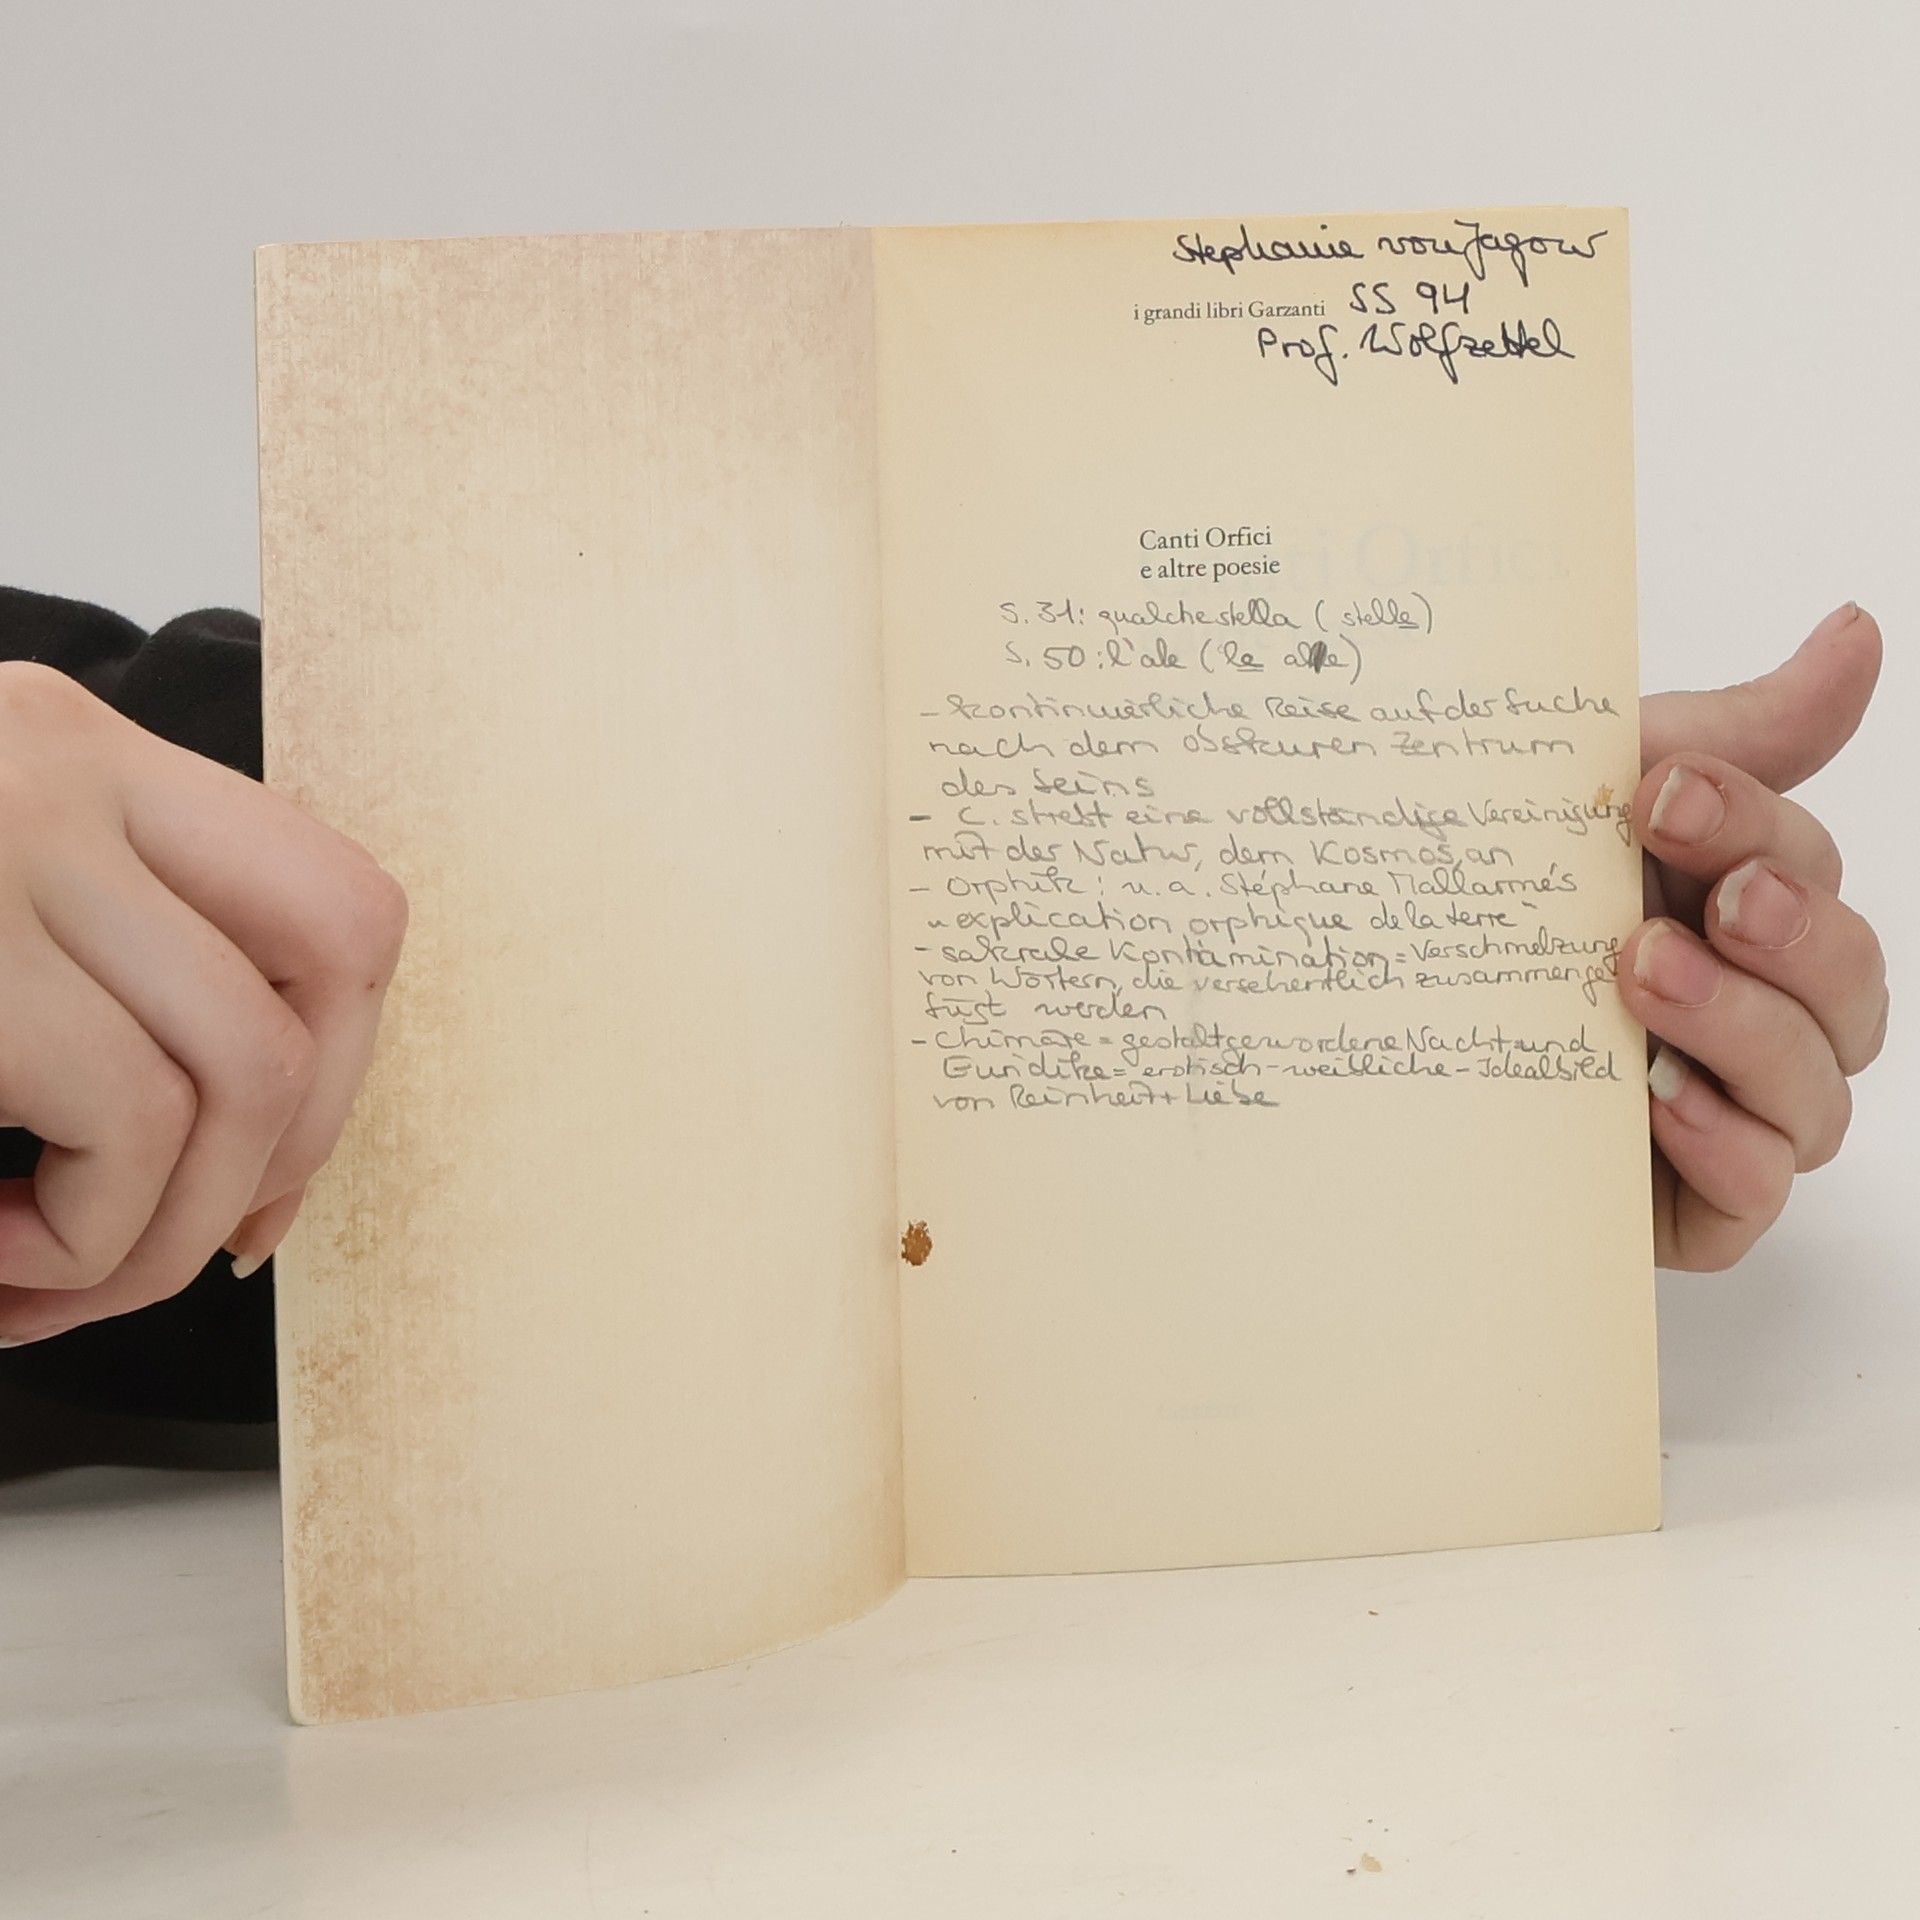 Stephanie von Jagow
i grandi libri Garzanti SS 94
Prof. Wolfzettel
Canti Orfici
e altre poesie
S. 31: qualche stella (stelle)
S. 50: l'ale (le
- kontinuierliche Reise auf der Suche
nach dem obskuren Zentrum
des Seins
- C. strebt eine vollständige Vereinigung
mit der Natur, dem Kosmos, an
- Orphik: u. a. Stéphane Mallarmés
"explication orphique de la terre"
- sakrale Kontamination = Verschmelzung
von Wörtern, die versehentlich zusammenge
fügt werden
- Chimäre = gestaltgewordene Nacht und
Euridike = erotisch-weibliche-Idealbild
von Reinheit + Liebe